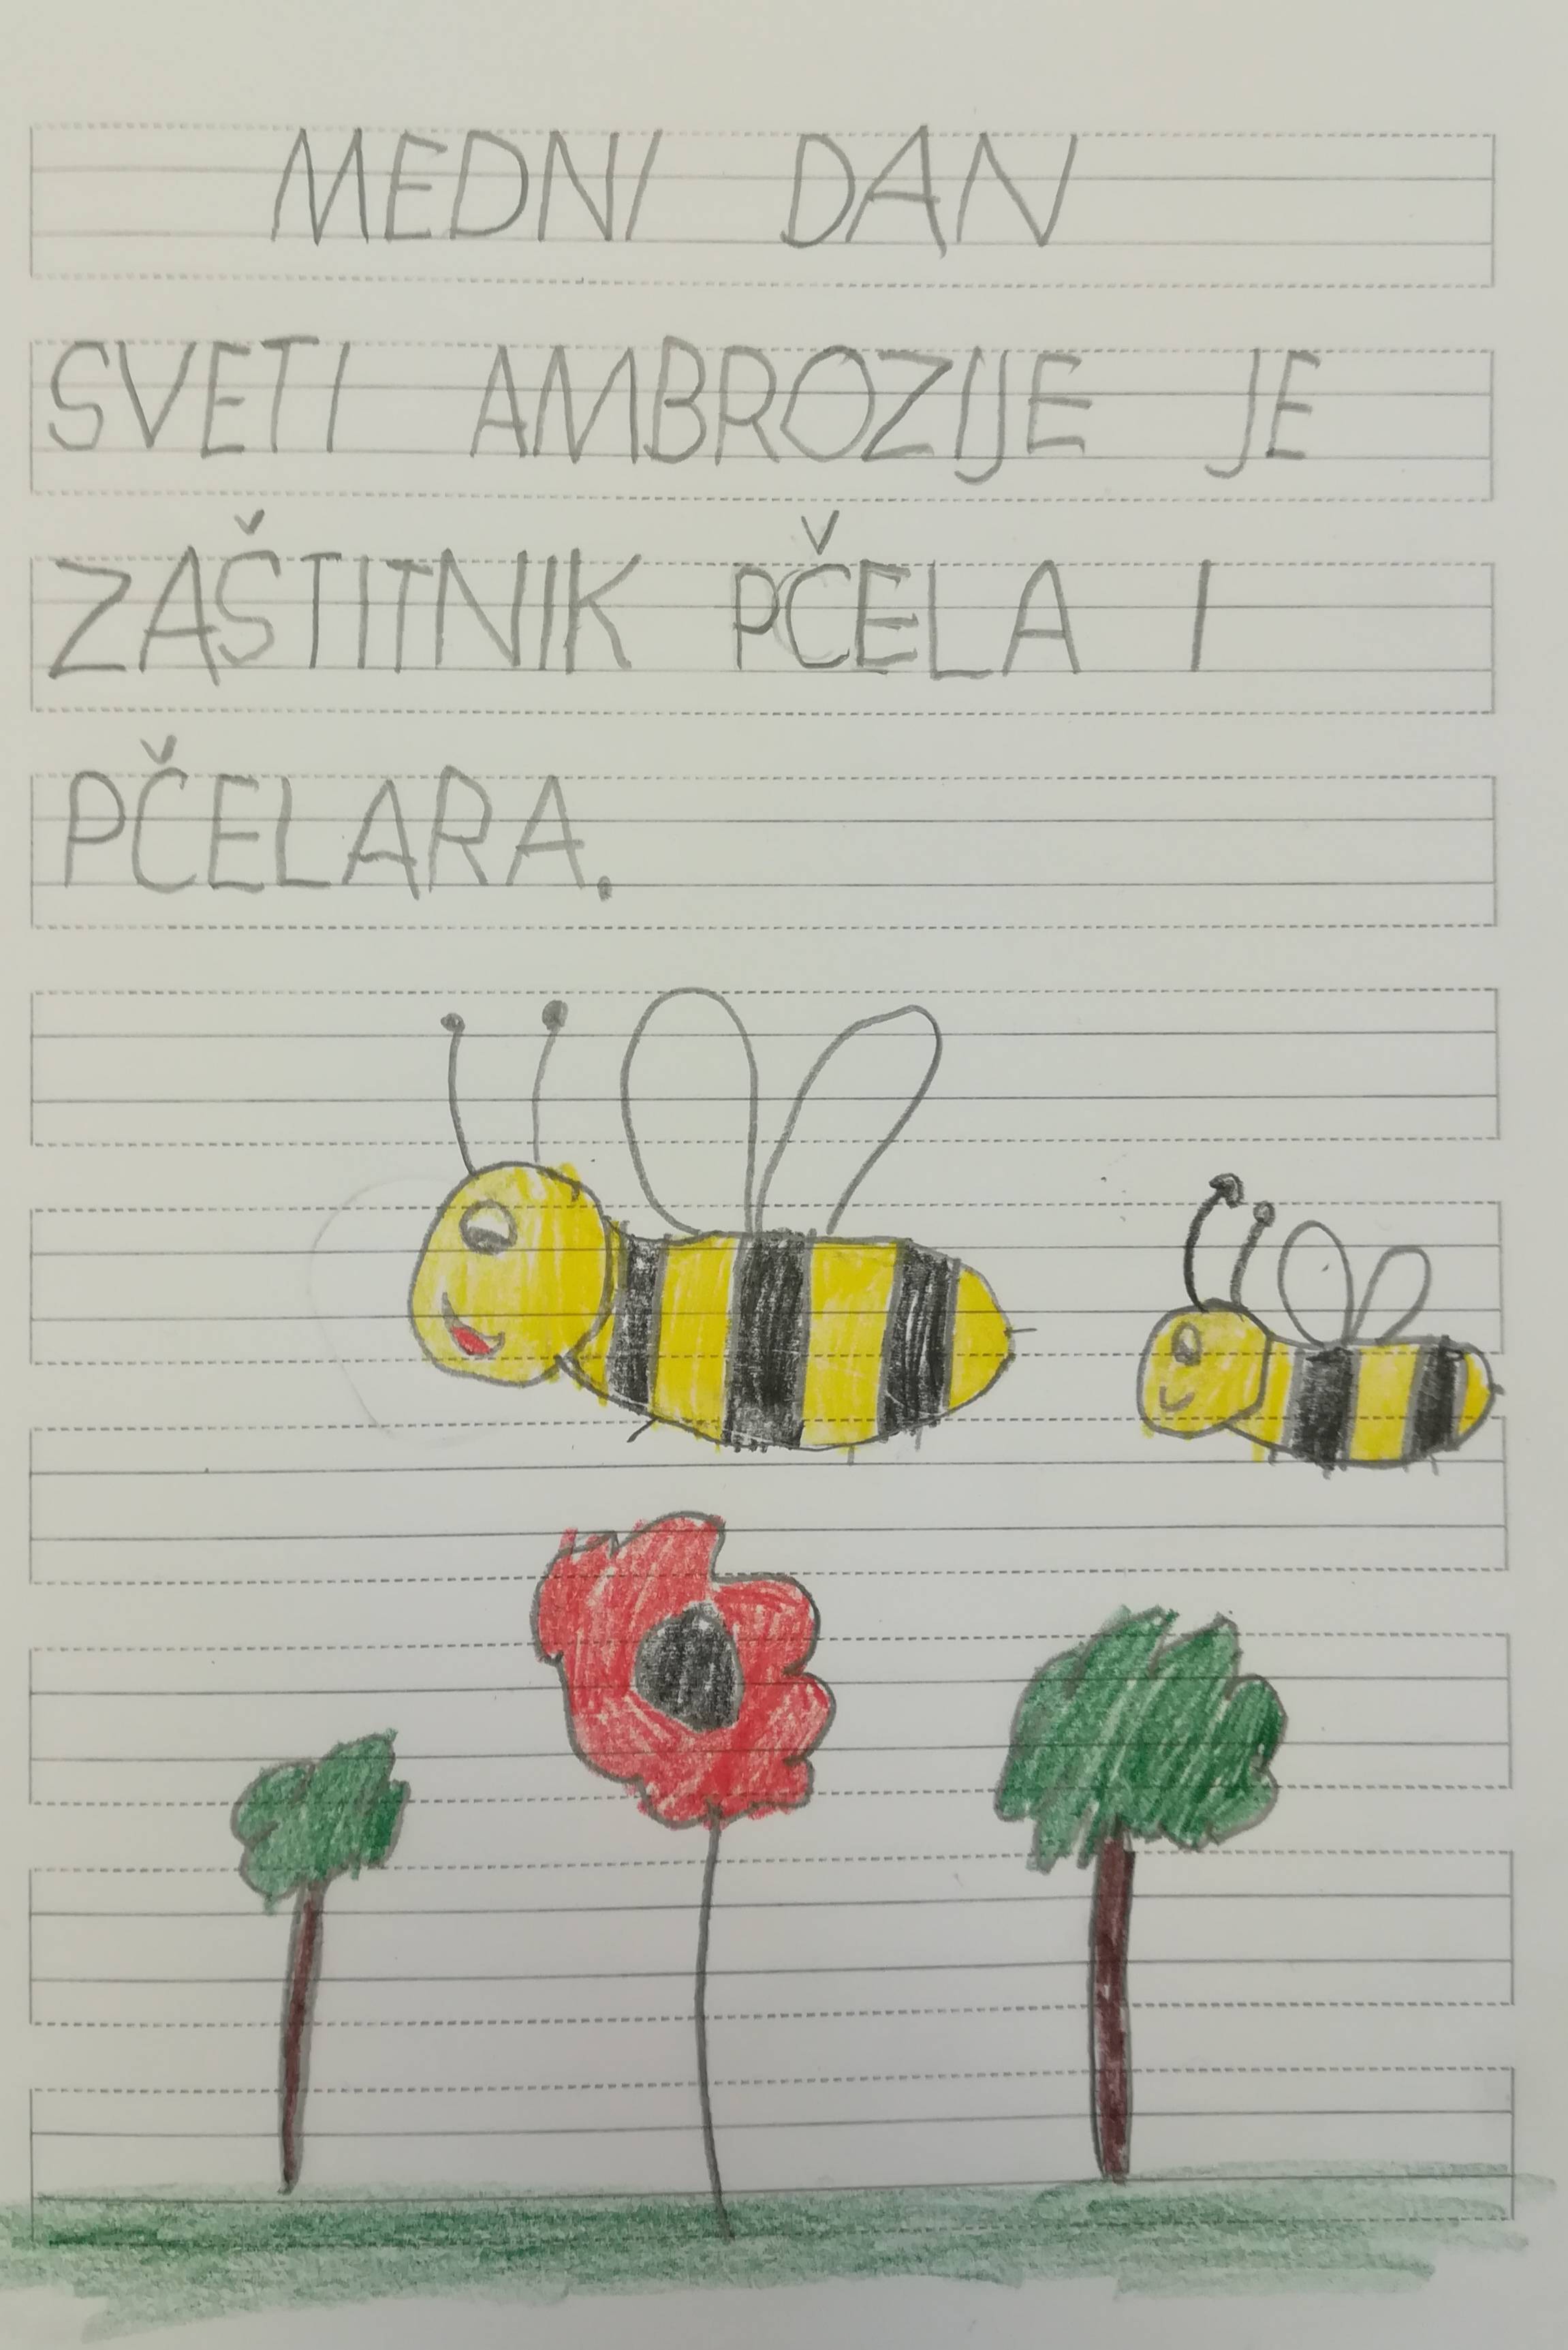 MEDNI DAN
SVETI AMBROZIJE JE
ZAŠTITNIK PČELA I
PČELARA.